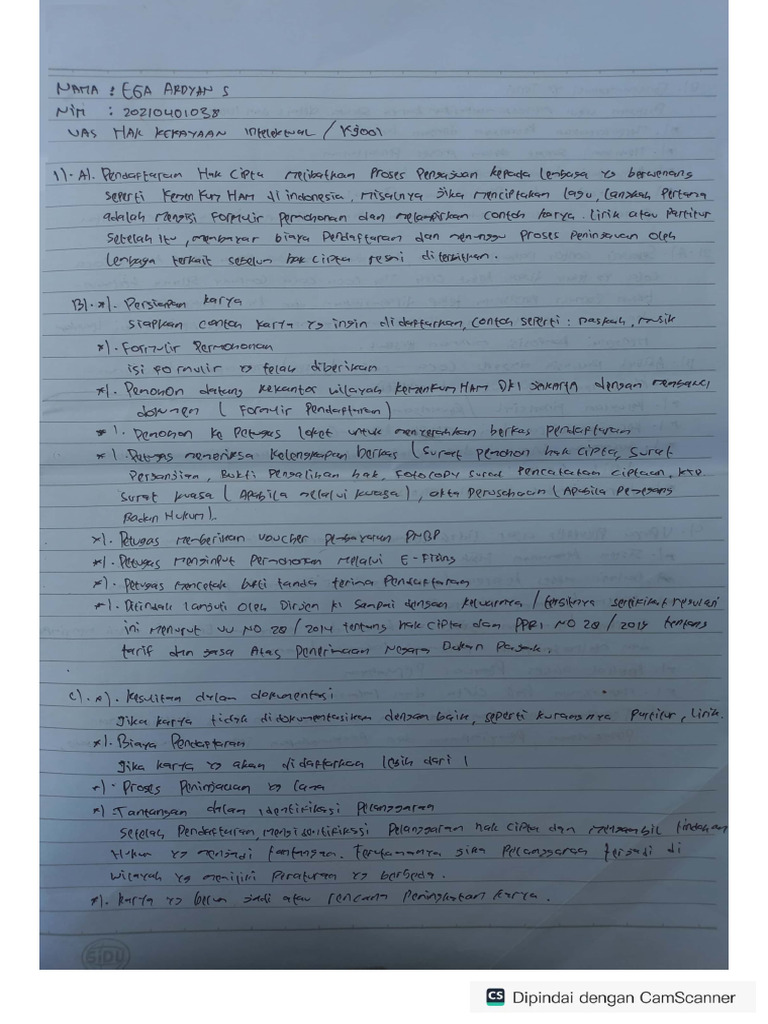 NAMA : EGA ARDYAN S
NIM : 20210401038
UAS HAK KEKAYAAN INTELEKTUAL / K3001
1). A). Pendaftaran Hak Cipta melibatkan Proses Pengajuan kepada Lembaga yg berwenang
seperti KemenKumHAM di indonesia, misalnya jika menciptakan lagu, langkah Pertama
adalah mengisi Formulir Permohonan dan melampirkan contoh karya. lirik atau Partitur
setelah itu, membayar biaya Pendaftaran dan menunggu Proses Peninjauan oleh
lembaga terkait sebelum hak cipta resmi diterbitkan.
B). *). Persiapan karya
Siapkan contoh karya yg ingin didaftarkan, contoh seperti : naskah, musik
*). Formulir Permohonan
isi formulir yg telah diberikan
*). Pemohon datang kekantor wilayah KemenKumHAM DKI Jakarta dengan membawa
dokumen ( Formulir Pendaftaran )
*). Pemohon ke Petugas loket untuk menyerahkan berkas pendaftaran
*). Petugas memeriksa kelengkapan berkas ( Surat pemohon hak cipta, surat
Perjanjian, Bukti Pengalihan hak, Fotocopy surat Pencatatan ciptaan, KTP
surat kuasa ( Apabila melalui kuasa ), akta perusahaan ( Apabila Pemegang
Badan Hukum ).
*). Petugas memberikan voucher pembayaran PNBP
*). Petugas menginput Permohonan melalui E-Filing
*). Petugas mencetak bukti tanda terima Pendaftaran
*). Ditindak lanjuti oleh Dirjen KI sampai dengan keluarnya / terbitnya sertifikat regulasi
ini menurut UU NO 28 / 2014 tentang hak cipta dan PPRI NO 28 / 2019 tentang
tarif dan jasa Atas Penerimaan Negara Bukan Pajak.
C). *). Kesulitan dalam dokumentasi
Jika karya tidak didokumentasikan dengan baik, seperti kurangnya Partitur, lirik.
*). Biaya Pendaftaran
Jika karya yg akan didaftarkan lebih dari 1
*). Proses Peninjauan yg lama
*). Tantangan dalam identifikasi Pelanggaran
Setelah Pendaftaran, mengidentifikasi Pelanggaran hak cipta dan mengambil tindakan
Hukum yg menjadi tantangan. Terutamanya jika Pelanggaran terjadi di
wilayah yg memiliki Peraturan yg berbeda.
*). Karya yg belum jadi atau rencana Peningkatan karya.
SiDU
CS Dipindai dengan CamScanner